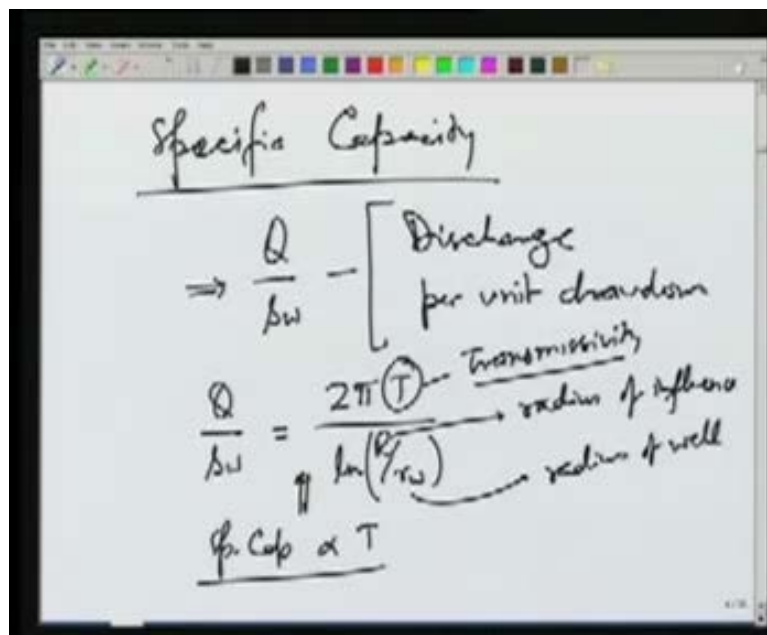 Specific Capacity
⇒ Q/sw - [ Discharge
per unit drawdown
Q/sw = 2π T / ln(R/rw)
Transmissivity
radius of influence
radius of well
Sp. Cap ∝ T